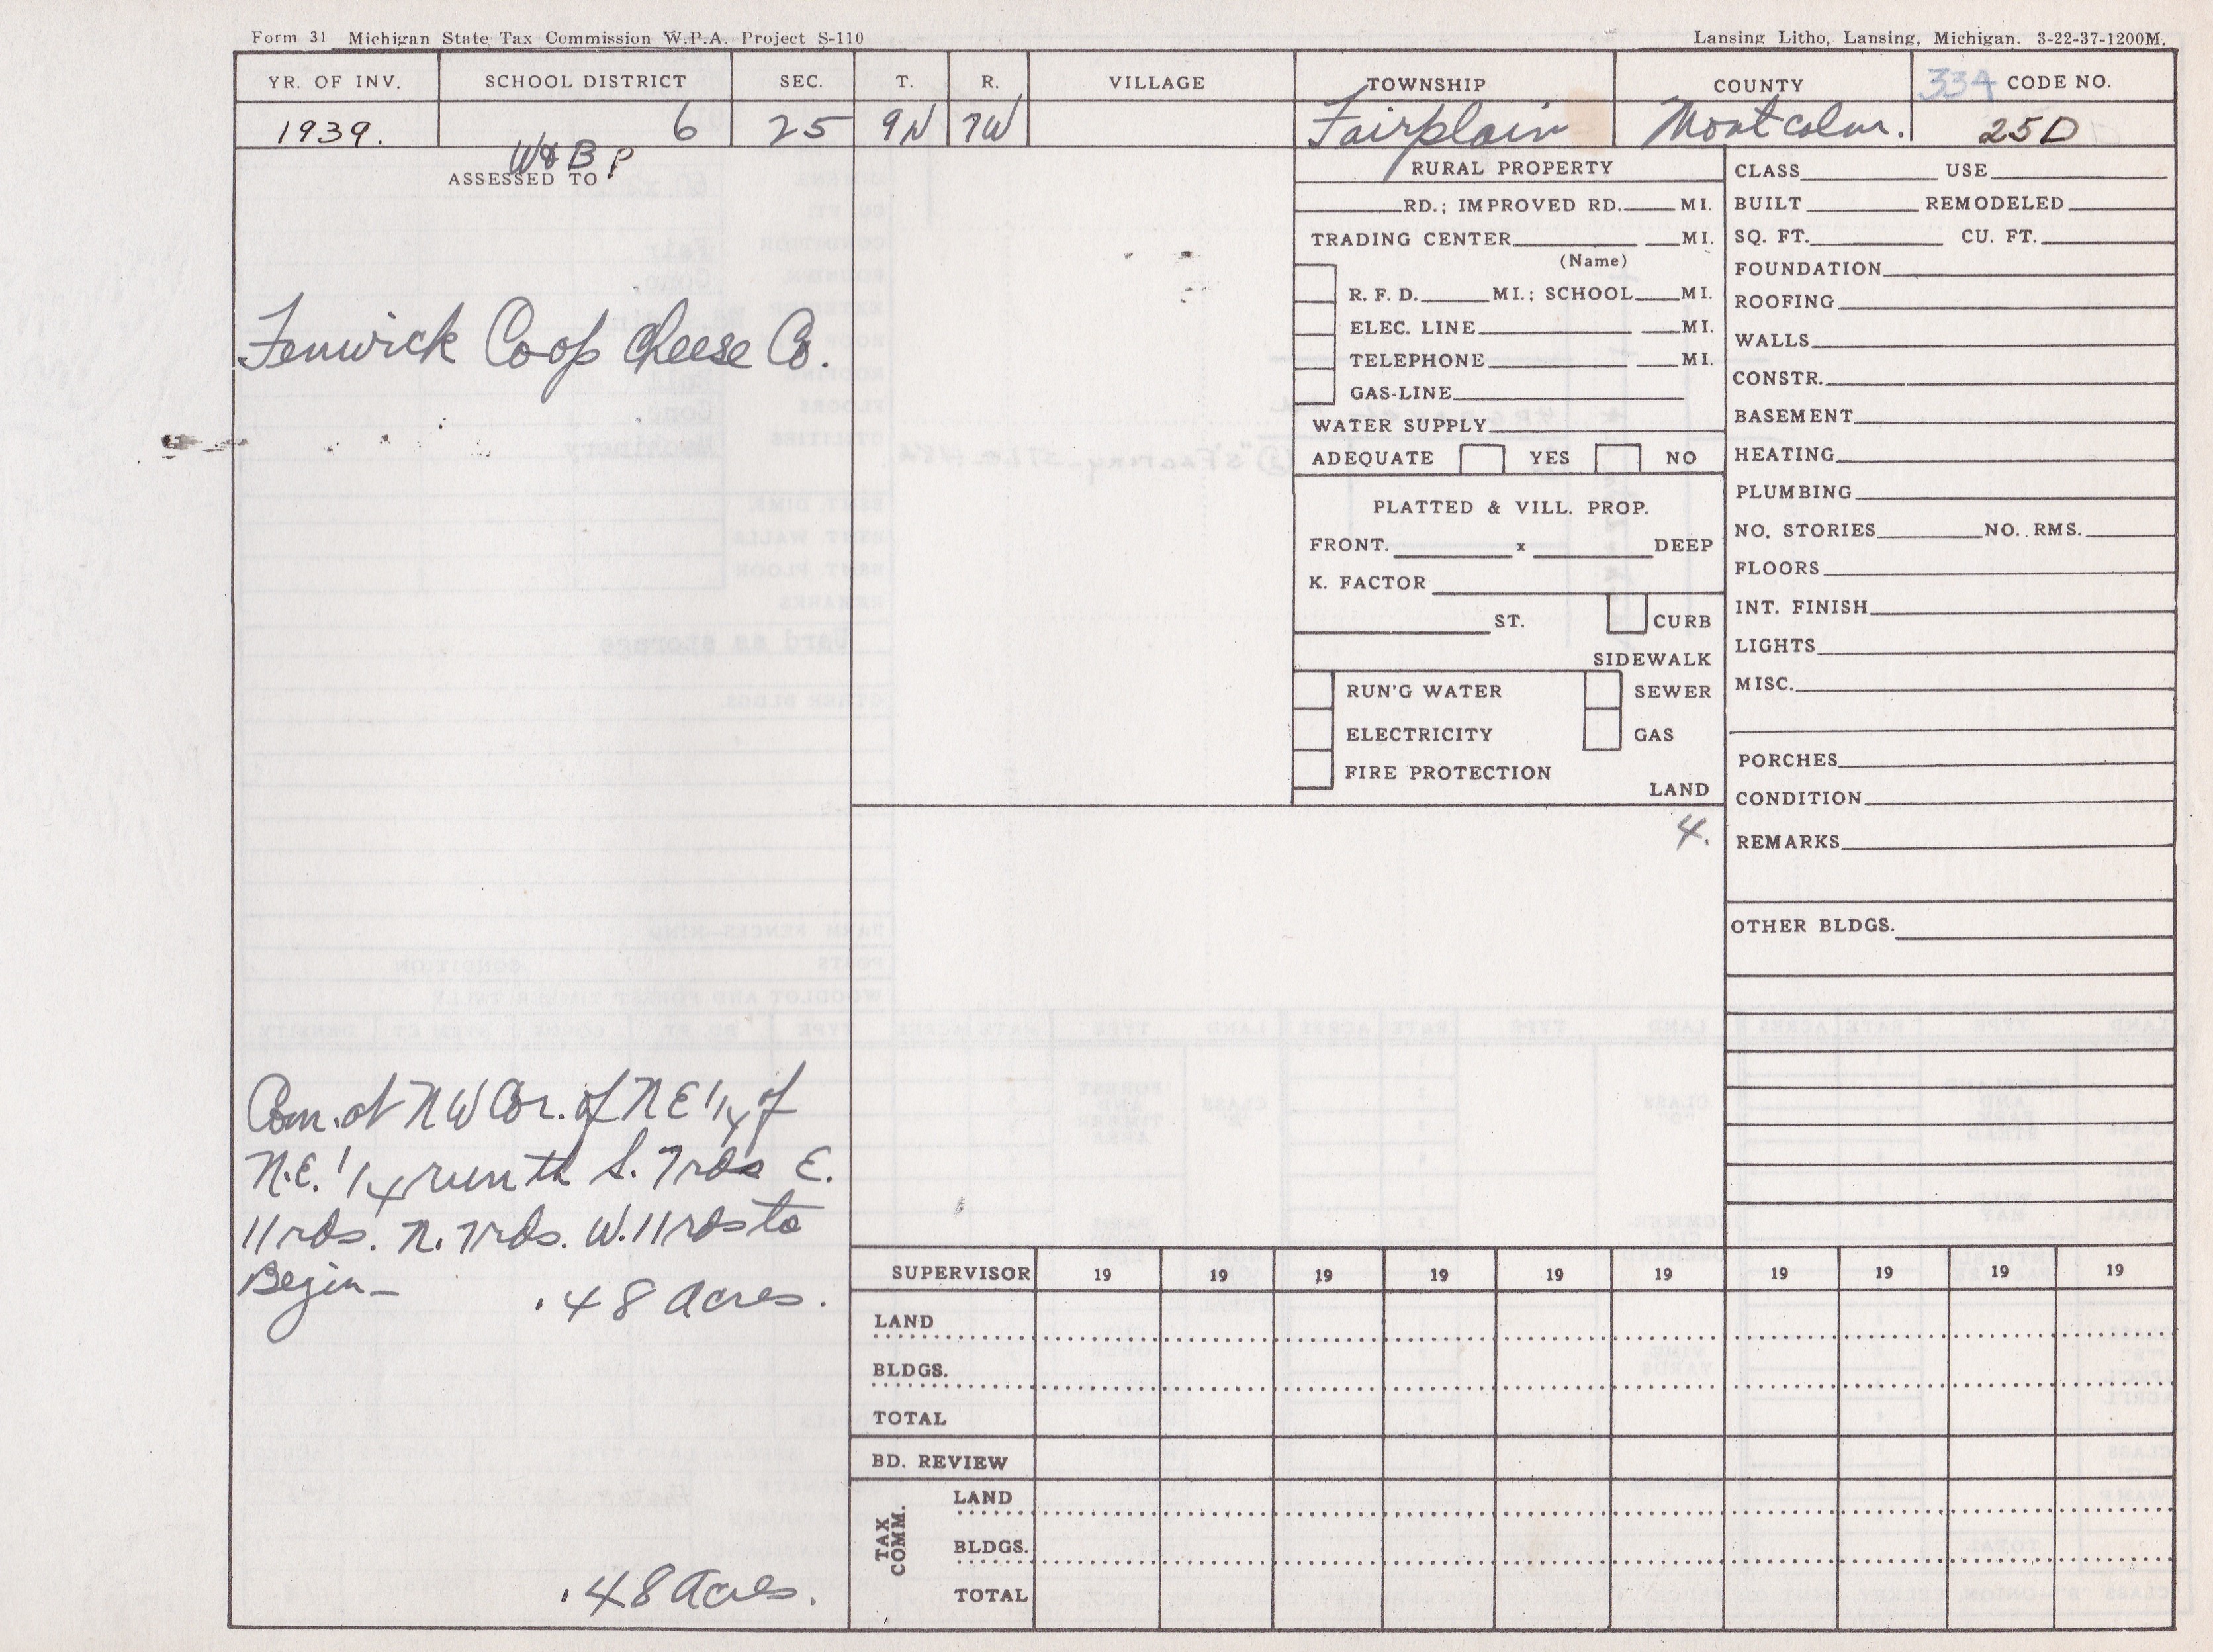 Form 31 Michigan State Tax Commission W.P.A. Project S-110
Lansing Litho, Lansing, Michigan. 3-22-37-1200M.
YR. OF INV. SCHOOL DISTRICT SEC. T. R. VILLAGE TOWNSHIP COUNTY 334 CODE NO.
1939. 6 25 9N 7W Fairplain Montcalm. 25D
W&BP
ASSESSED TO
Fenwick Coop Cheese Co.
Com. at NW Cor. of NE 1/4 of
N.E. 1/4 run th S. 7 rds E.
11 rds. N. 7 rds. W. 11 rds to
Begin—
.48 Acres.
.48 Acres.
RURAL PROPERTY
RD.; IMPROVED RD. MI.
TRADING CENTER MI.
(Name)
R. F. D. MI.; SCHOOL MI.
ELEC. LINE MI.
TELEPHONE MI.
GAS-LINE
WATER SUPPLY
ADEQUATE YES NO
PLATTED & VILL. PROP.
FRONT. x DEEP
K. FACTOR
ST. CURB
SIDEWALK
RUN'G WATER SEWER
ELECTRICITY GAS
FIRE PROTECTION
LAND
4.
CLASS USE
BUILT REMODELED
SQ. FT. CU. FT.
FOUNDATION
ROOFING
WALLS
CONSTR.
BASEMENT
HEATING
PLUMBING
NO. STORIES NO. RMS.
FLOORS
INT. FINISH
LIGHTS
MISC.
PORCHES
CONDITION
REMARKS
OTHER BLDGS.
SUPERVISOR 19 19 19 19 19 19 19 19 19 19
LAND
BLDGS.
TOTAL
BD. REVIEW
TAX COMM.
LAND
BLDGS.
TOTAL